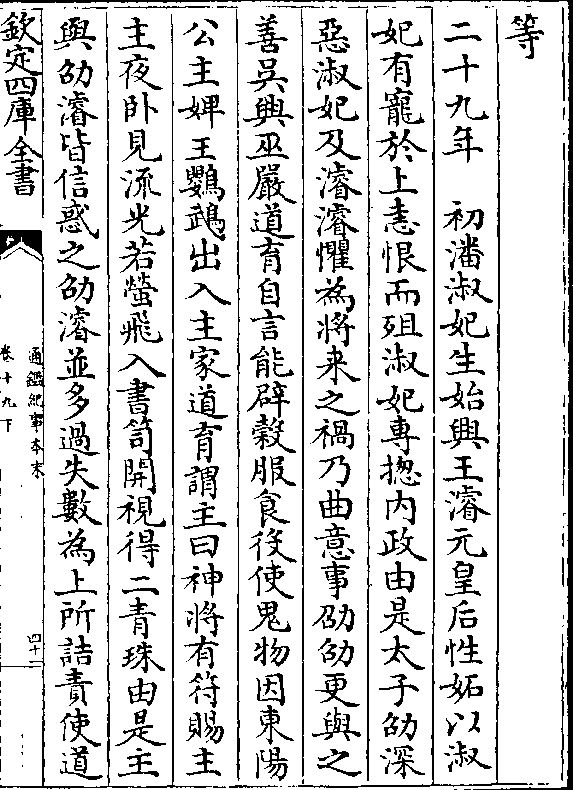 等
二十九年　初潘淑妃生始興王濬元皇后性妬以淑
妃有寵於上恚恨而殂淑妃專揔内政由是太子劭深
惡淑妃及濬濬懼為將来之禍乃曲意事劭劭更與之
善吳興巫嚴道育自言能辟榖服食役使鬼物因東陽
公主婢王鸚鵡出入主家道育謂主曰神將有符賜主
主夜卧見流光若螢飛入書笥開視得二青珠由是主
與劭濬皆信惑之劭濬並多過失數為上所詰責使道
欽定四庫全書
通鑑紀事本末
卷十九下
四十二